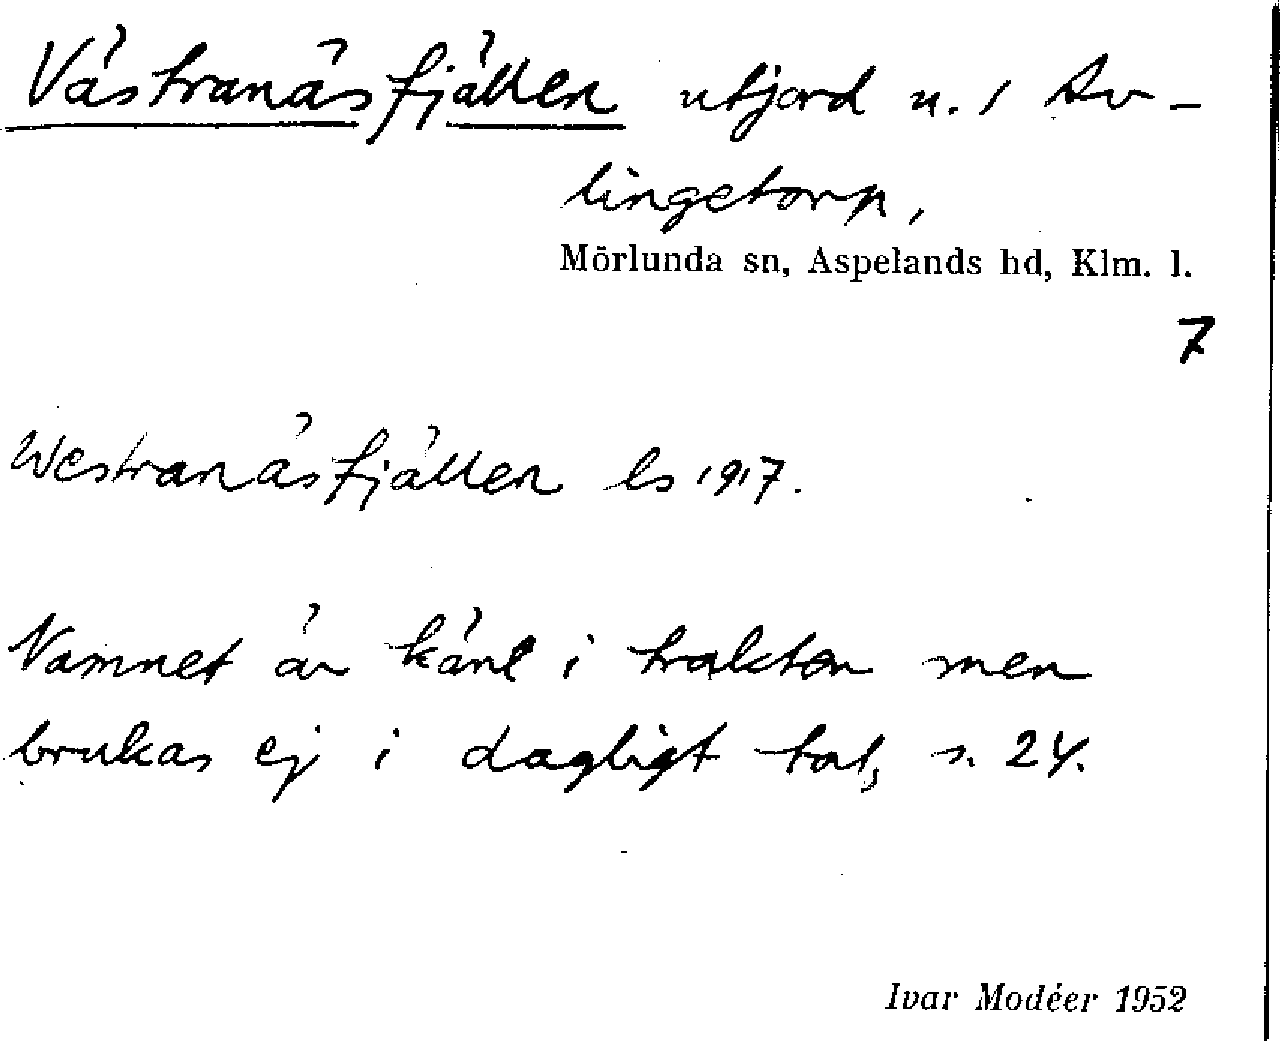 Västranäsfjällen utjord n. 1 Av-
lingetorp,
Mörlunda sn, Aspelands hd, Klm. l.
7
Westranäsfjällen ls 1917.
Namnet är känt i trakten men
brukas ej i dagligt tal, s. 24.
Ivar Modéer 1952